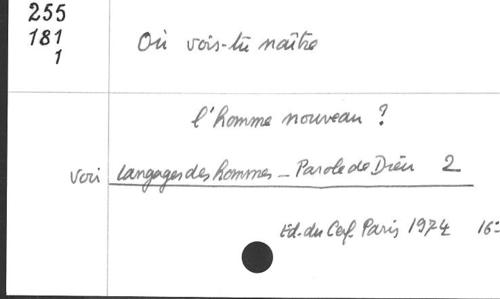 255
181
1
Où vois-tu naître
l'homme nouveau ?
voir langages des hommes - Parole de Dieu 2
Ed. du Cerf. Paris 1974 16